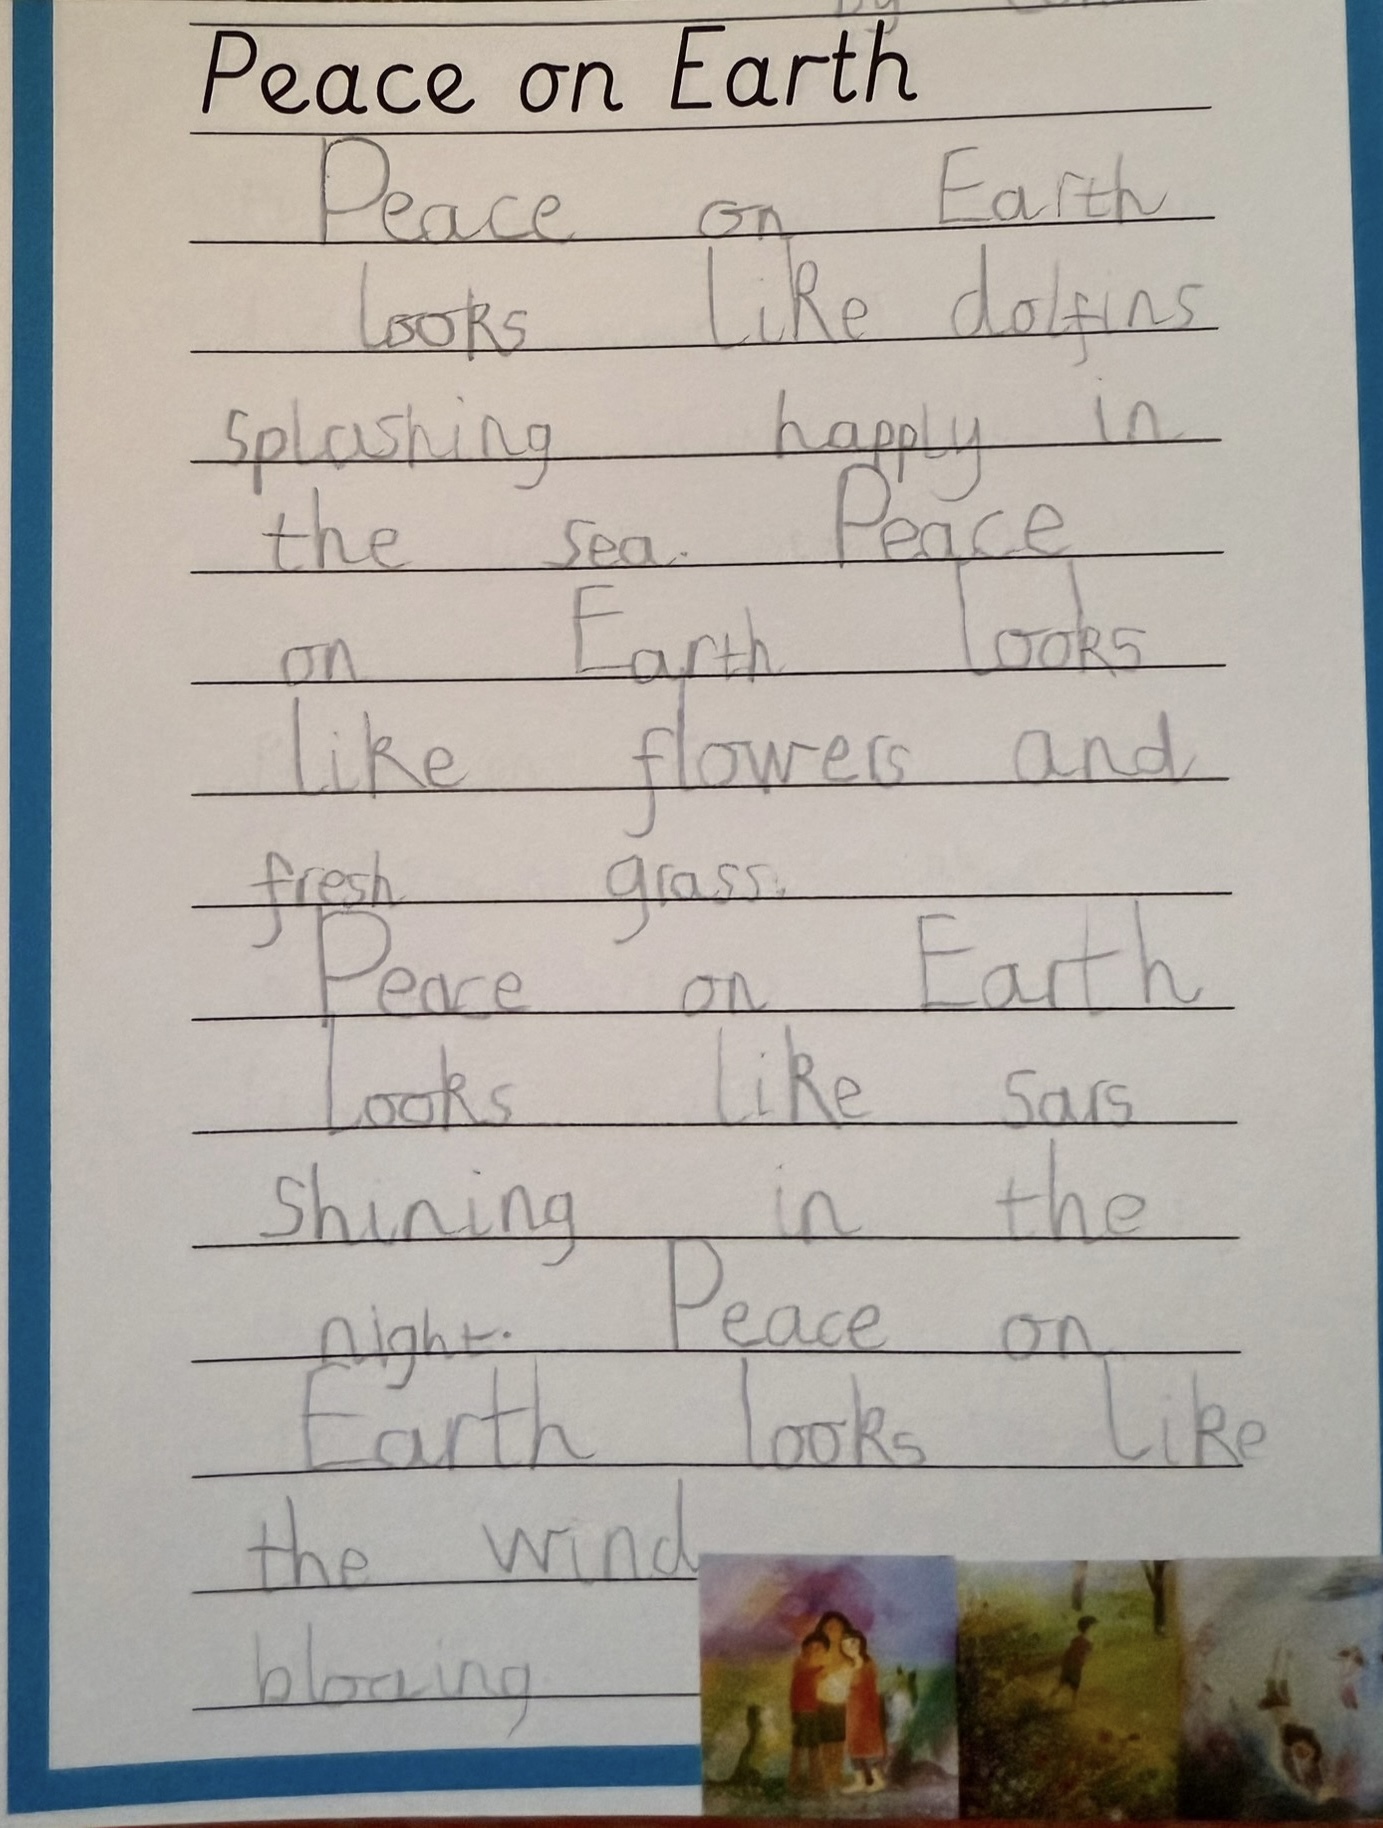 by
Peace on Earth
Peace on Earth
looks like dolfins
splashing happly in
the sea. Peace
on Earth looks
like flowers and
fresh grass.
Peace on Earth
looks like sars
shining in the
night. Peace on
Earth looks like
the wind
bloaing